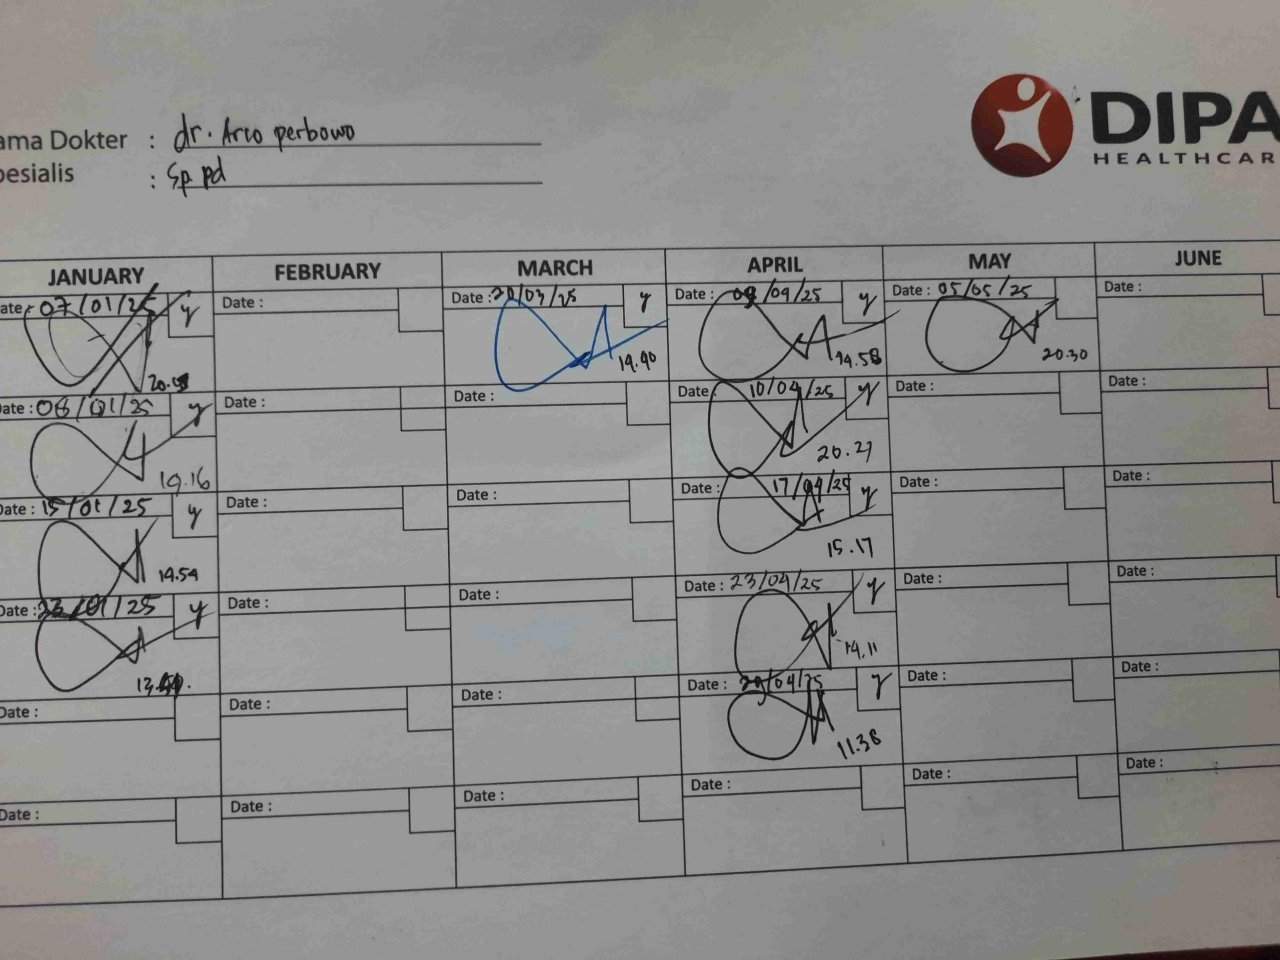 ama Dokter : dr. Arco perbowo
pesialis : Sp pd
DIPA
HEALTHCAR
JANUARY FEBRUARY MARCH APRIL MAY JUNE
ate: 07/01/25 y Date : Date : 20/03/25 y Date : 09/04/25 y Date : 05/05/25 Date :
14.40 14.58 20.30
Date : 08/01/25 y Date : Date : Date 10/04/25 y Date : Date :
19.16 20.27
Date : 15/01/25 y Date : Date : Date : 17/04/25 y Date : Date :
14.54 15.17
Date : 23/01/25 y Date : Date : Date : 23/04/25 y Date : Date :
14.11
Date : Date : Date : Date : 29/04/25 y Date : Date :
11.38
Date : Date : Date : Date : Date : Date :